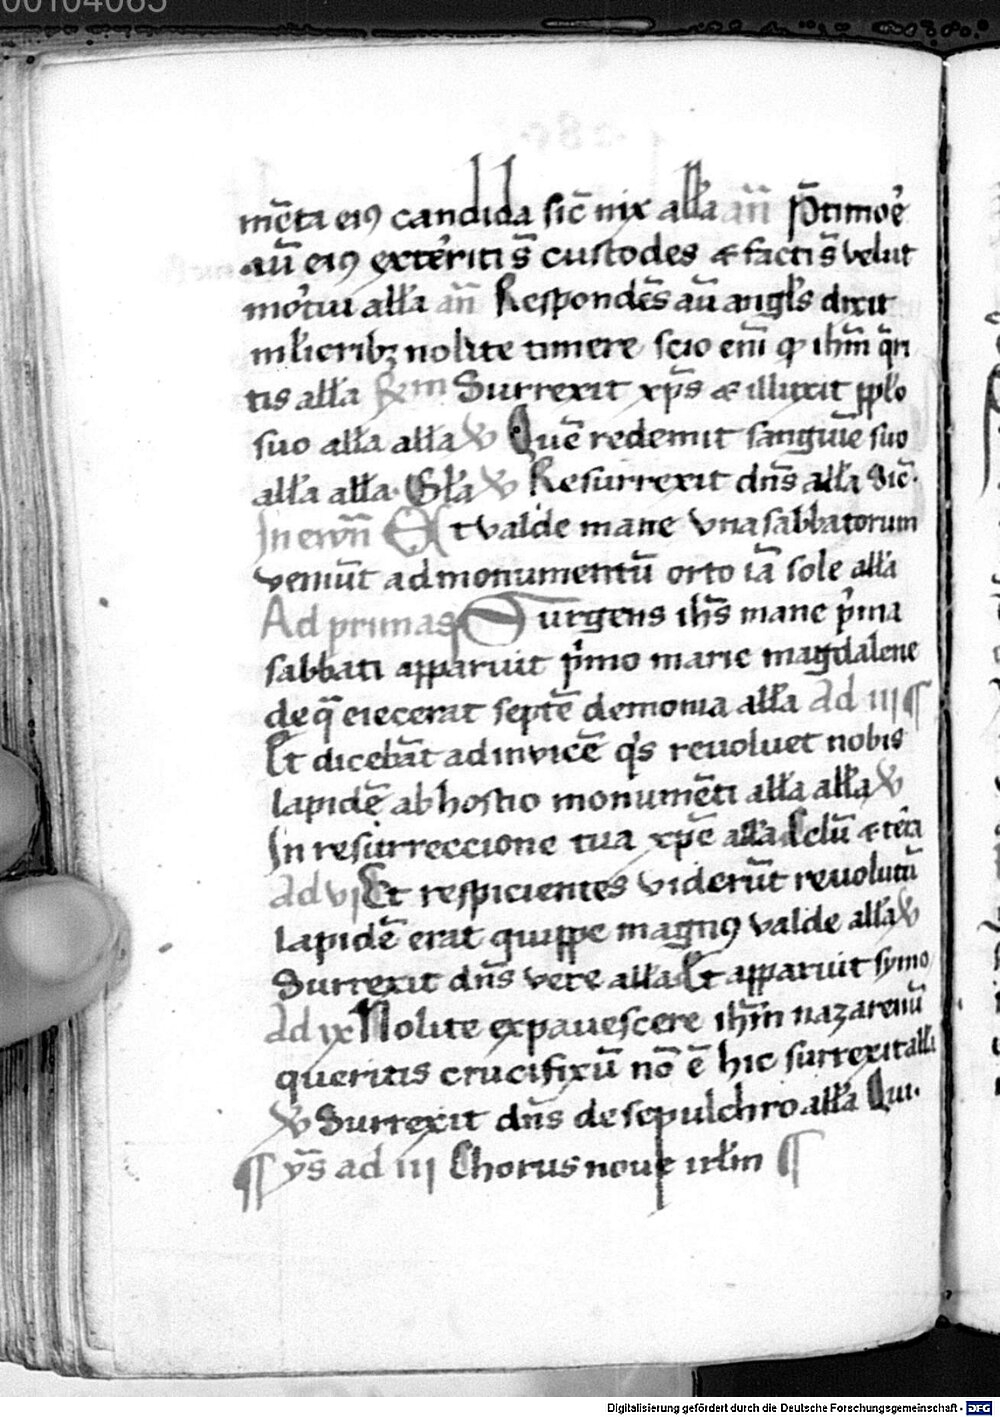 00104065
mēta eiꝰ candida sic̄ nix all̄a an̄ P̄timoꝛ̄e
aū eiꝰ exter̄iti s̄ custodes ⁊ facti s̄ velut
mor̄tui all̄a an̄ Respondēs aū angl̄s dixit
ml̄ieribꝫ nolite timere scio eni̅ ꝙ ihm̄ q̄ri
tis all̄a Surrexit xp̄s ⁊ illuxit pp̄lo
suo all̄a all̄a ℣ Quē redemit sanguīe suo
all̄a all̄a Gl̄a ℣ Resurrexit dn̄s all̄a Sic̄.
In ewn̄ Et valde mane vna sabbatorum
veniūt ad monumentū orto iā sole all̄a
Ad primas Surgens ihs̄ mane p̄ma
sabbati apparuit p̄mo marie magdalene
de q̄ eiecerat septē demonia all̄a Ad iii ¶
Et dicebāt ad invicē q̄s reuoluet nobis
lapidē ab hostio monumēti all̄a all̄a ℣
In resurreccione tua xp̄e all̄a Celū ⁊ ter̄a
Ad vi Et respicientes viderūt reuolutū
lapidē erat quippe magnꝰ valde all̄a ℣
Surrexit dn̄s vere all̄a Et apparuit symo
Ad ix Nolite expauescere ihm̄ nazarenū
queritis crucifixū nō ē hic surrexit all̄a
℣ Surrexit dn̄s de sepulchro all̄a Qui.
¶ ys̄ ad iii Chorus noue irl̄m ¶
Digitalisierung gefördert durch die Deutsche Forschungsgemeinschaft - DFG